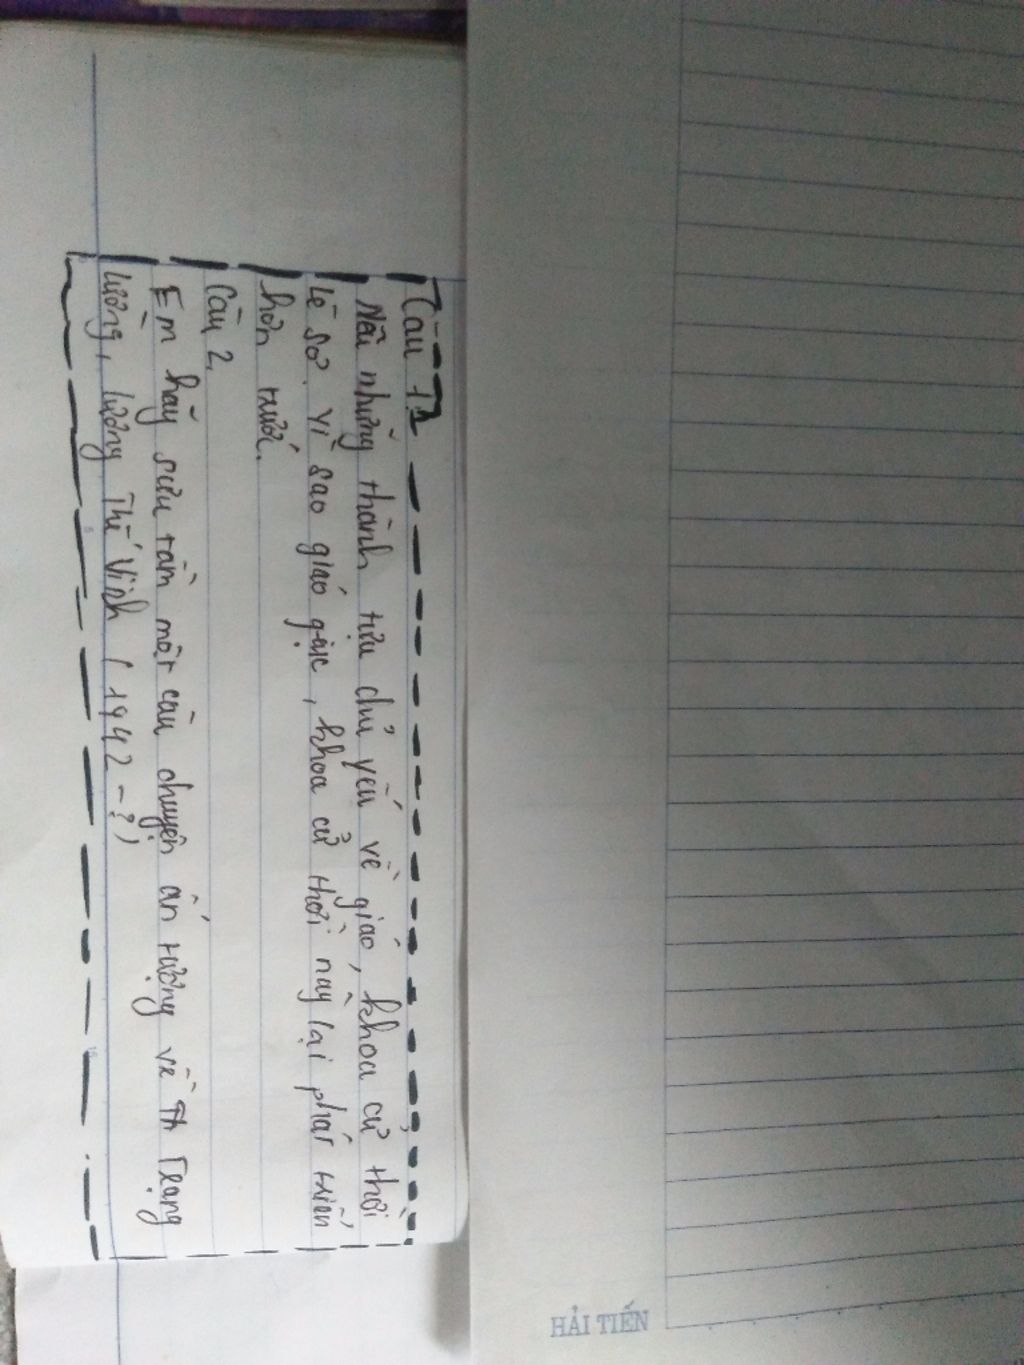 Câu 1.
Nêu những thành tựu chủ yếu về giáo, khoa cử thời
Lê sơ. Vì sao giáo gục, khoa cử thời nay lại phát triển
hơn trước.
Câu 2.
Em hãy sưu tầm một câu chuyện ấn tượng về Trạng
Lường, Lương Thế Vinh (1442 - ?)
HẢI TIẾN